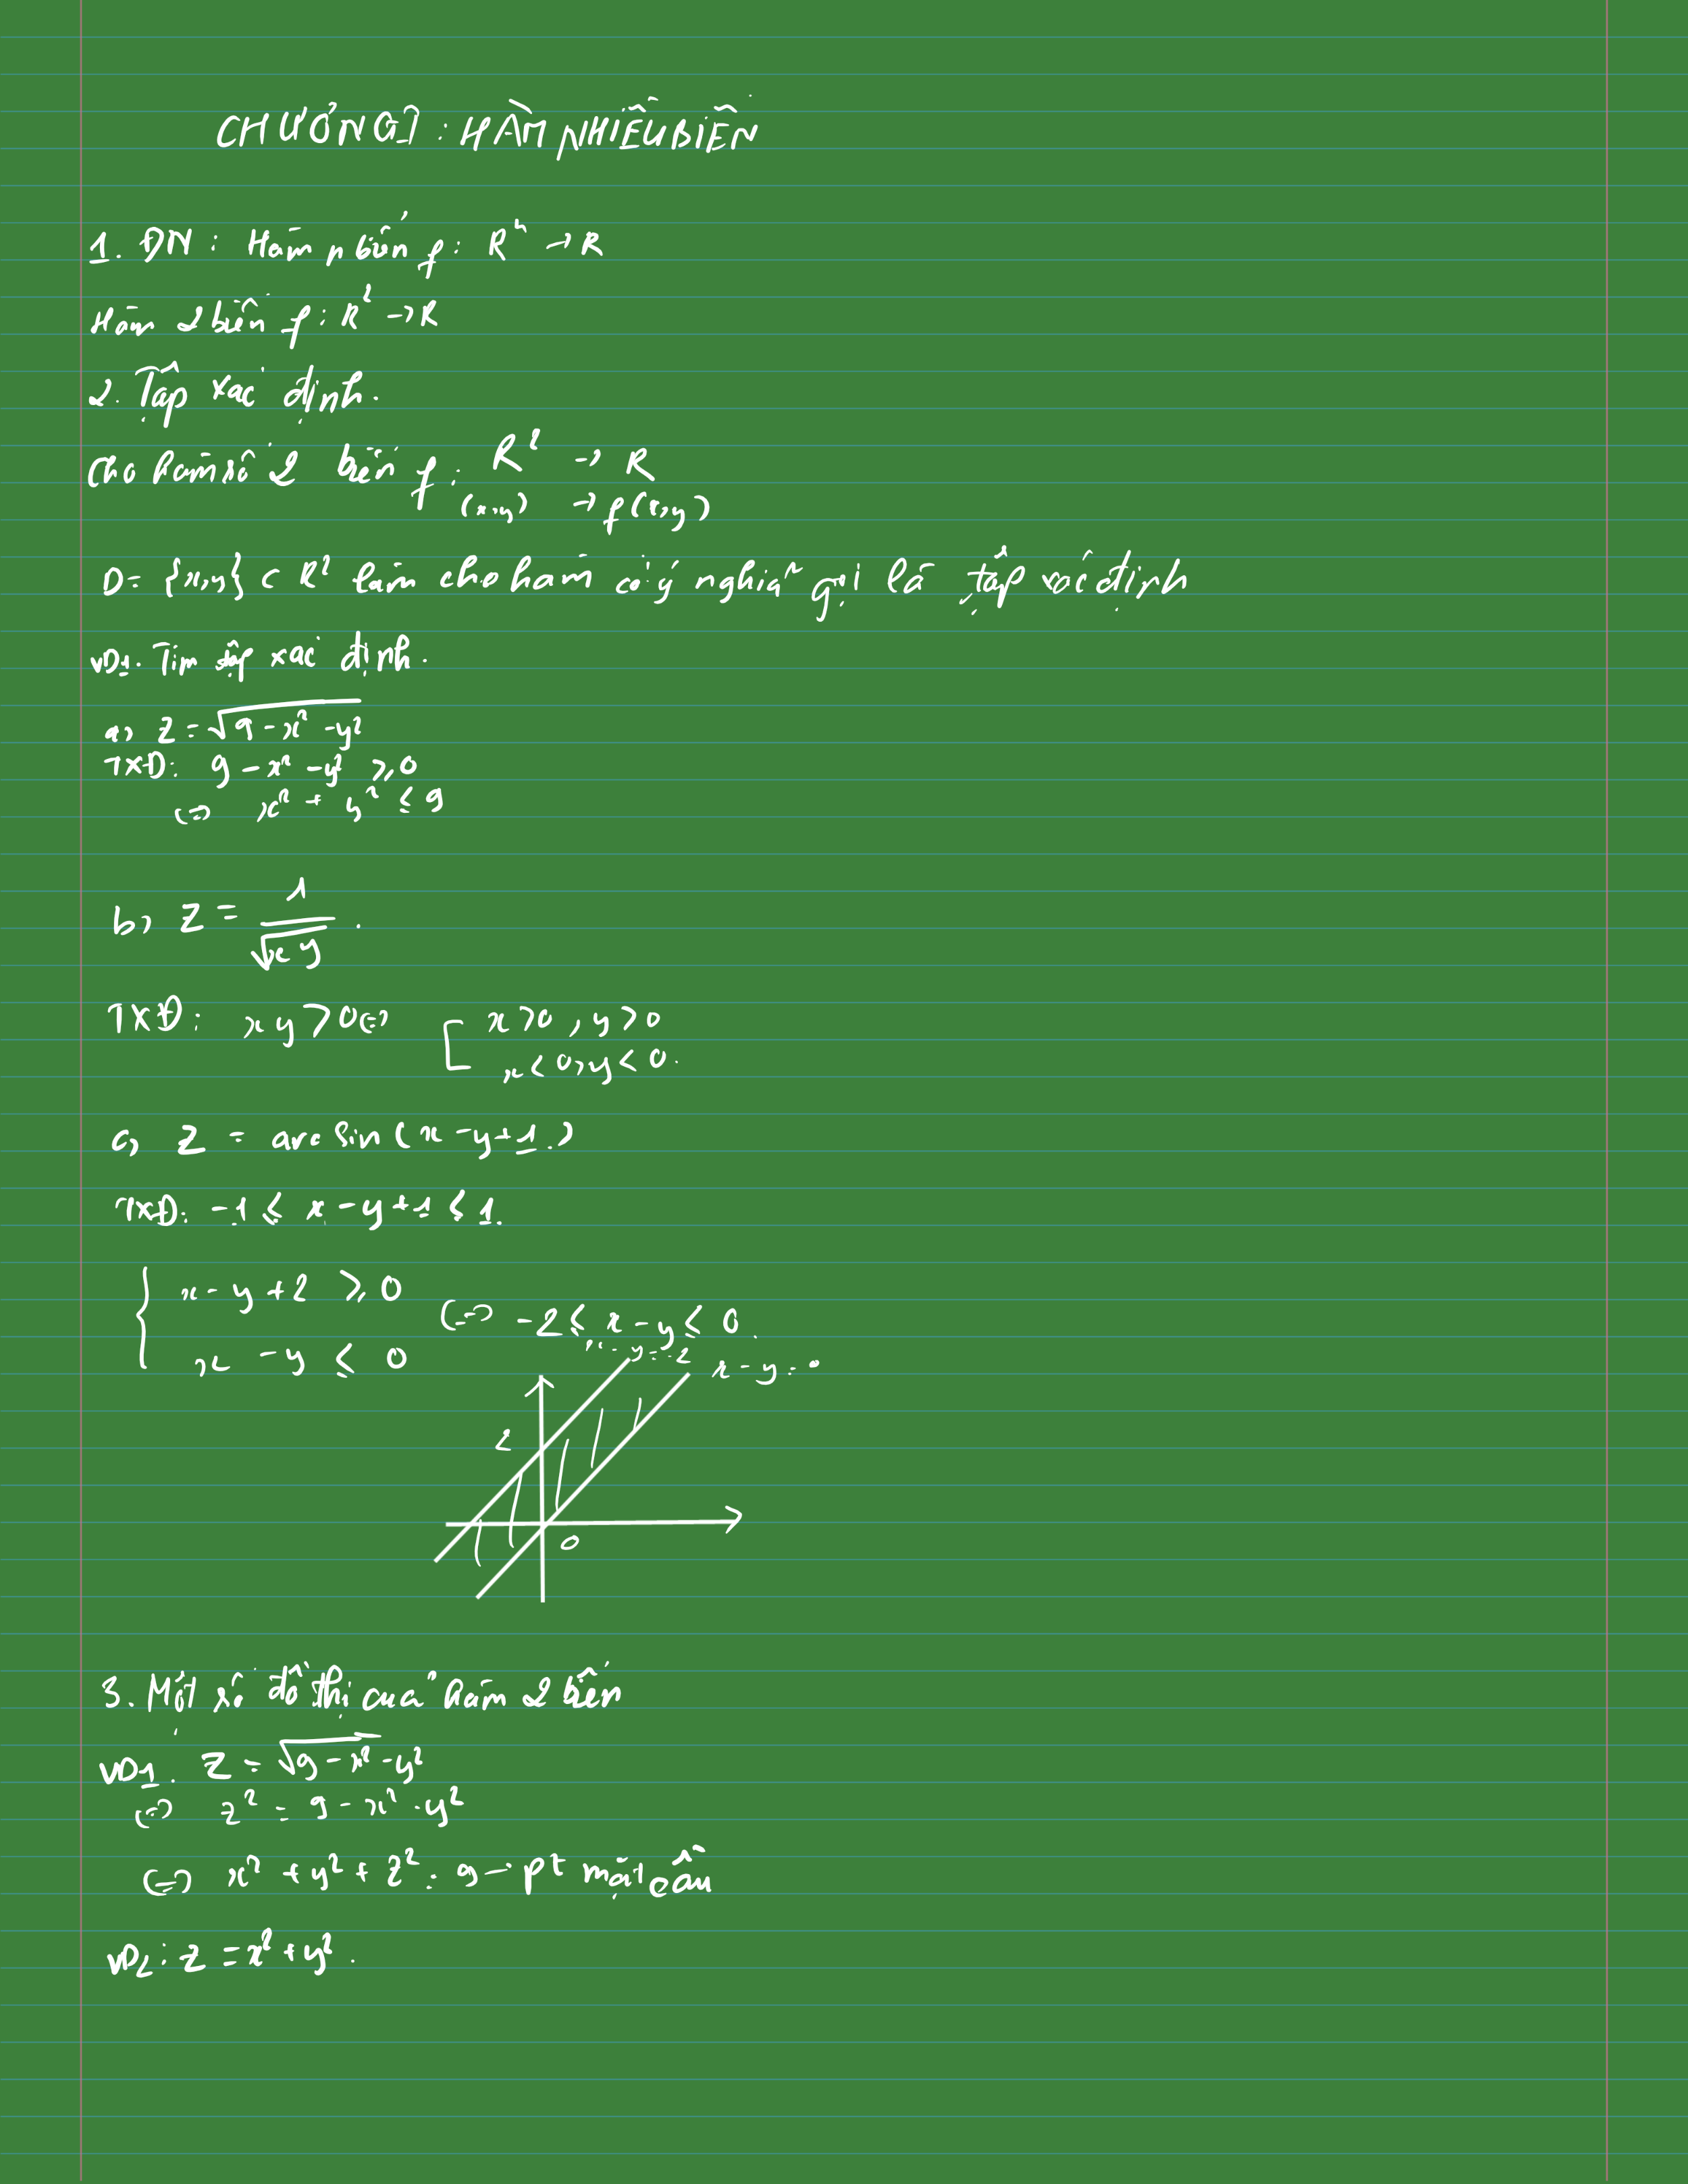 CHƯƠNG I: HÀM NHIỀU BIẾN
1. ĐN: Hàm n biến f: Rⁿ → R
Hàm 2 biến f: R² → R
2. Tập xác định.
Cho hàm số 2 biến f: R² → R
(x,y) → f(x,y)
D = {x,y} ⊂ R² làm cho hàm có ý nghĩa gọi là tập xác định
VD1. Tìm tập xác định.
a, z = √(9 - x² - y²)
TXĐ: 9 - x² - y² ≥ 0
⇔ x² + y² ≤ 9
b, z = 1/√(xy).
TXĐ: xy > 0 ⇔ [ x > 0, y > 0
x < 0, y < 0.
c, z = arc sin(x - y + 1)
TXĐ: -1 ≤ x - y + 1 ≤ 1.
{ x - y + 2 ≥ 0
x - y ≤ 0 ⇔ -2 ≤ x - y ≤ 0.
x - y = -2
x - y = 0
2
0
3. Một số đồ thị của hàm 2 biến
VD1. z = √(9 - x² - y²)
⇔ z² = 9 - x² - y²
⇔ x² + y² + z² = 9 → pt mặt cầu
VD2: z = x² + y².